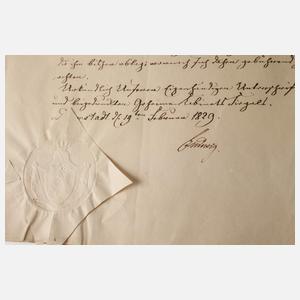 die ihn bitzen ablegt wornach sich dahin gebührend
achten.
Urkundlich Unserer Eigenhändigen Unterschrift
und beigedruckten Geheimen Cabinets Siegels.
Darmstadt d. 19ten Februar 1829.
Ludwig